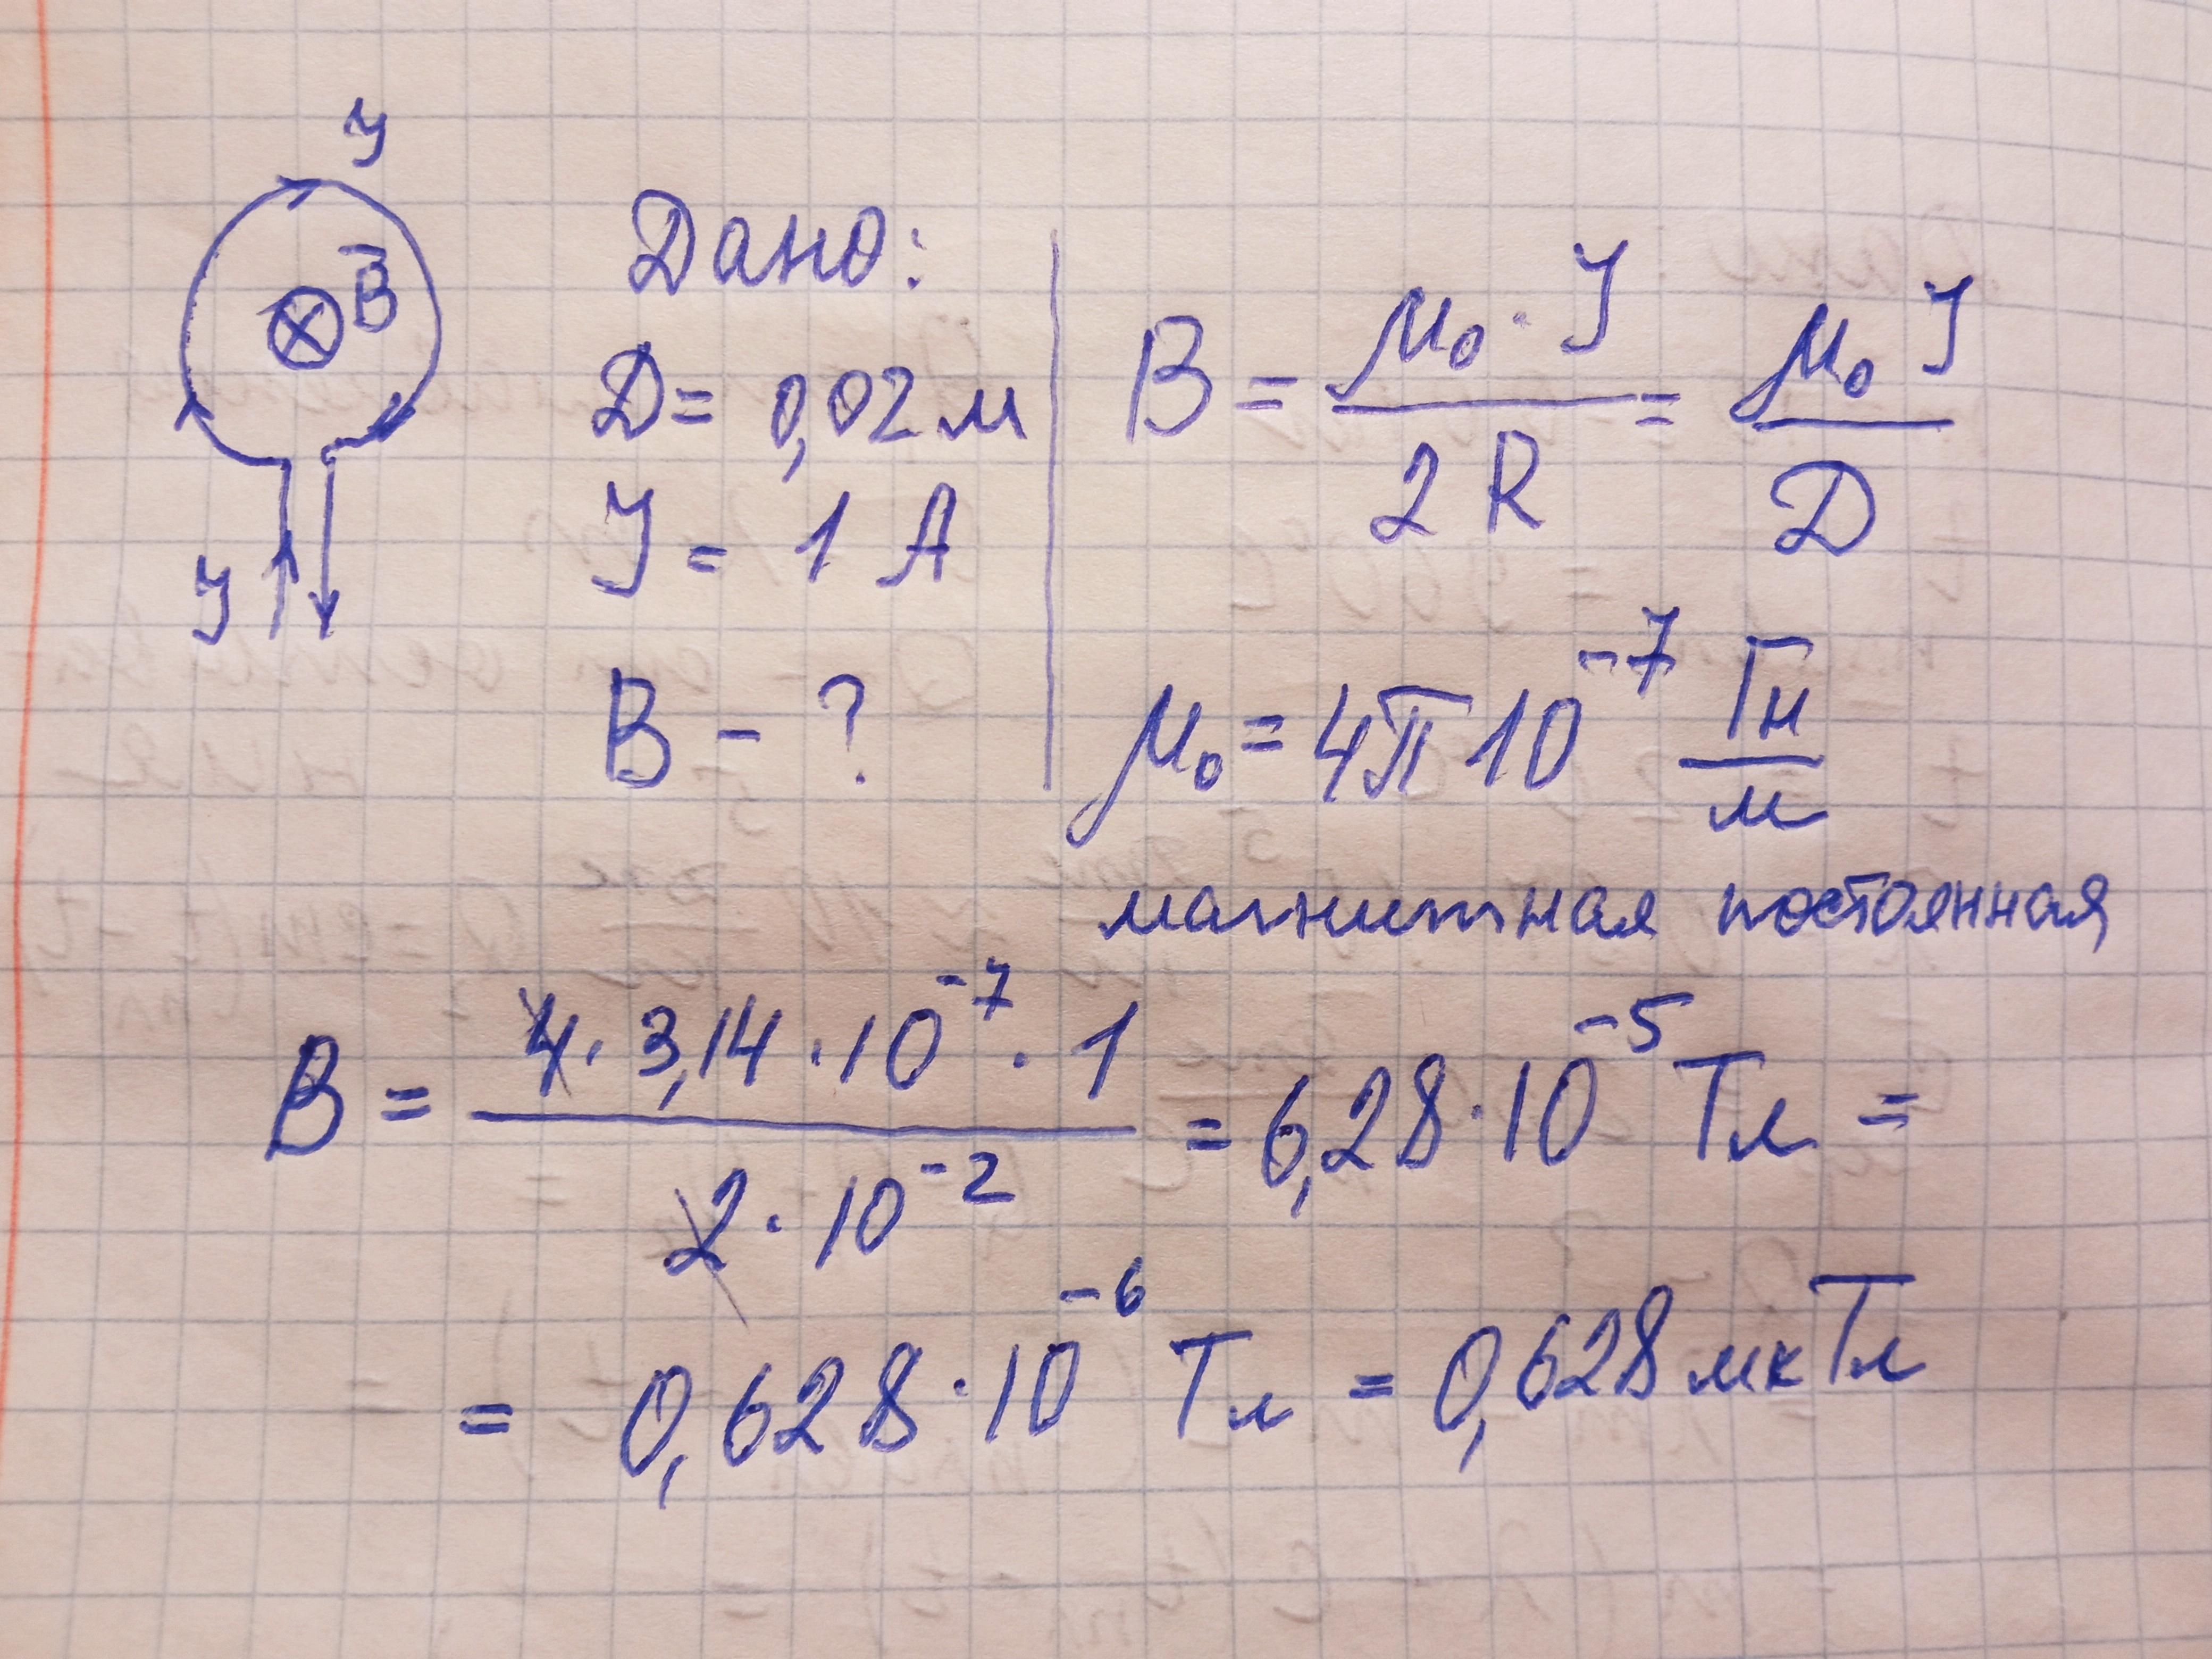 J
B⃗
J
Дано:
D = 0,02 м
J = 1 А
B - ?
B = μ₀ · J / 2 R = μ₀ J / D
μ₀ = 4π 10⁻⁷ Гн/м
магнитная постоянная
B = 4 · 3,14 · 10⁻⁷ · 1 / 2 · 10⁻² = 6,28 · 10⁻⁵ Тл =
= 0,628 · 10⁻⁶ Тл = 0,628 мкТл